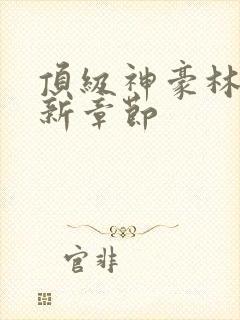 頂級神豪林
新章節
官非